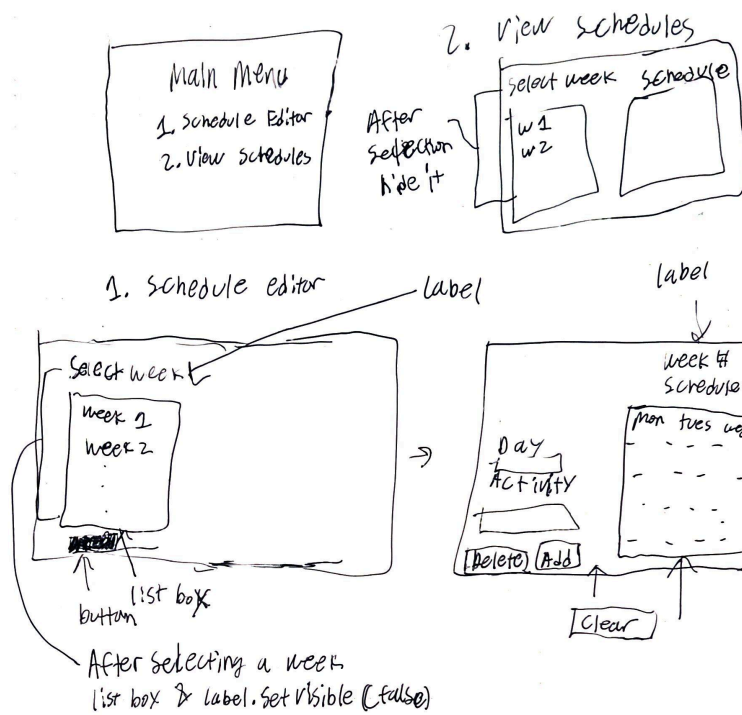 Main Menu
1. Schedule Editor
2. View Schedules
2. View Schedules
Select week
Schedule
w1
w2
After
Selection
hide it
1. Schedule editor
Label
Select week
week 1
week 2
button
list box
After selecting a week
list box & label.setvisible (false)
label
week #
Schedule
Mon tues we
Day
Activity
Delete
Add
Clear